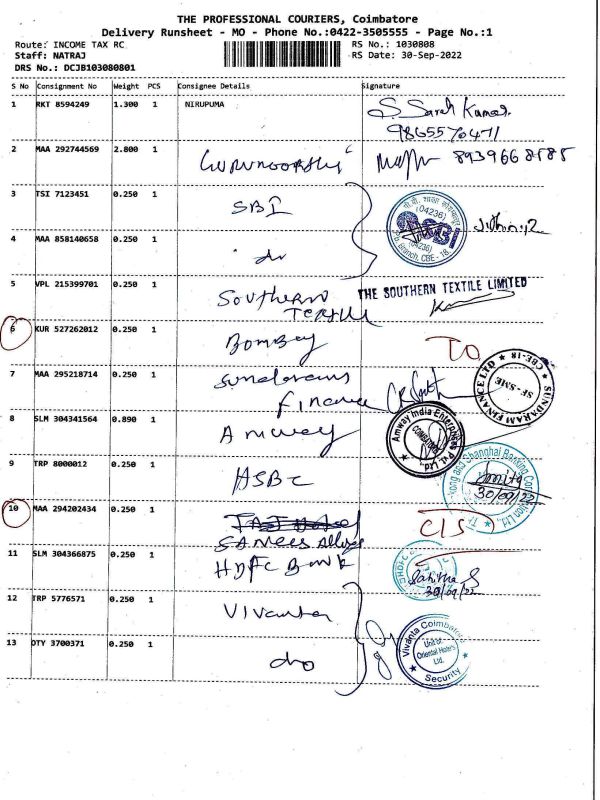 THE PROFESSIONAL COURIERS, Coimbatore
Delivery Runsheet - MO - Phone No.:0422-3505555 - Page No.:1
Route: INCOME TAX RC RS No.: 1030808
Staff: NATRAJ RS Date: 30-Sep-2022
DRS No.: DCJB103080801
S No Consignment No Weight PCS Consignee Details Signature
1 RKT 8594249 1.300 1 NIRUPUMA S. Sarath Kumar.
9865576471
2 MAA 292744569 2.800 1 Gurumoorthy 8939668588
3 TSI 7123451 0.250 1 SBI
(04236)
SBI
(04236)
Branch, CBE - 18.
4 MAA 858140658 0.250 1 do
5 VPL 215399701 0.250 1 Southern Textile THE SOUTHERN TEXTILE LIMITED
6 KUR 527262012 0.250 1 Bombay TO
7 MAA 295218714 0.250 1 Sundarams Finance
SUNDRAM FINANCE LTD ★ CBE-18 ★
SF - SME
8 SLM 304341564 0.890 1 Amway
Amway India Enterprises Pvt. Ltd.
COIMBATORE
9 TRP 8000012 0.250 1 HSBC
Shanghai Banking Corporation Ltd.
30/09/22
10 MAA 294202434 0.250 1 CIS
11 SLM 304366875 0.250 1 HDFC Bank
HDFC
30/09/22
12 TRP 5776571 0.250 1 Vivanta
Vivanta Coimbatore
Unit of
Oriental Hotels
Ltd.
Security
13 DTY 3700371 0.250 1 do